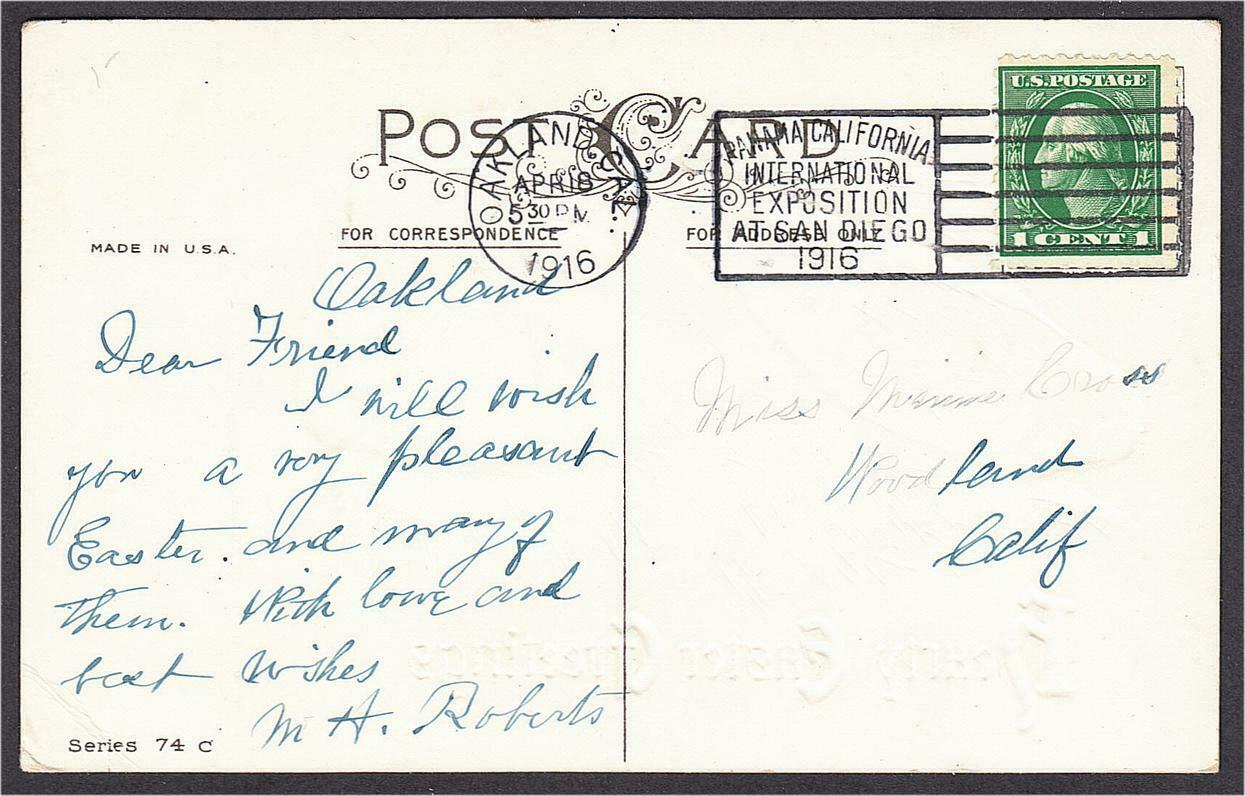 POST CARD
U.S. POSTAGE
1 CENT 1
OAKLAND CAL.
APR 18
5 30 PM
1916
PANAMA CALIFORNIA
INTERNATIONAL
EXPOSITION
AT SAN DIEGO
1916
MADE IN U.S.A.
FOR CORRESPONDENCE
FOR ADDRESS ONLY
Oakland
Dear Friend
I will wish
you a very pleasant
Easter. and many of
them. With love and
best wishes
M H. Roberts
Series 74 C
Miss Minnie Cross
Woodland
Calif
Hearty Easter Greetings